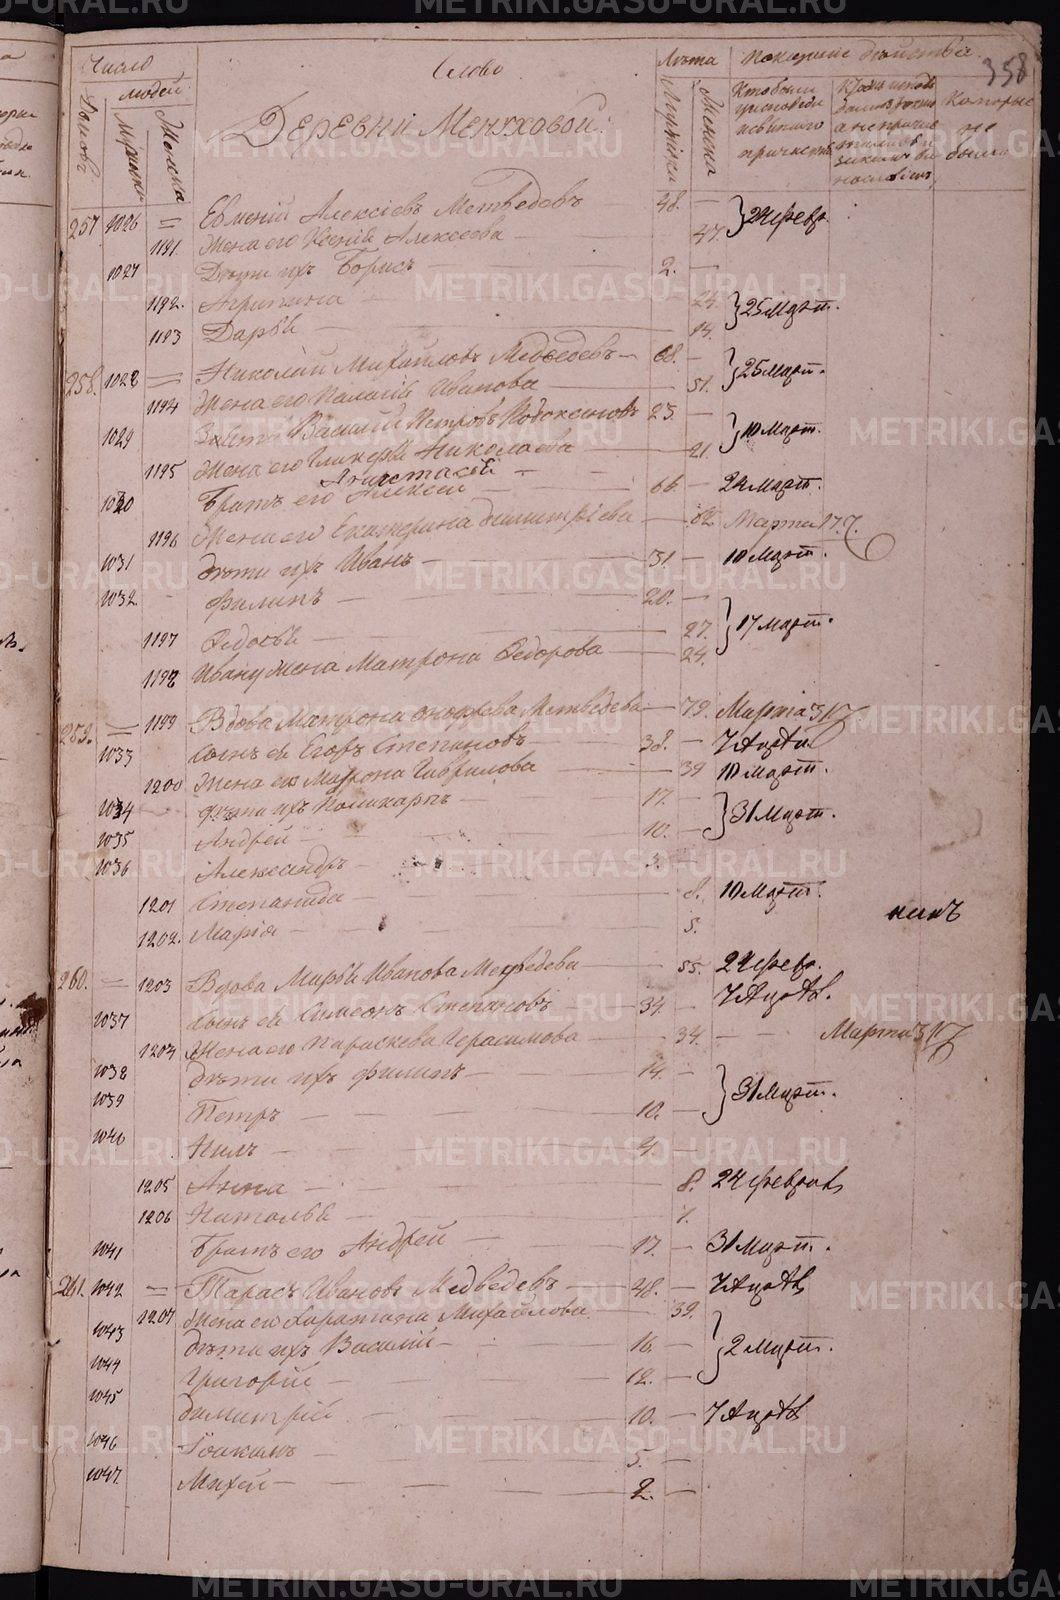 358
Число
Слово
Лѣта
Показаніе дѣйства
Домовъ
людей
Мужска
Женска
Мужска
Женска
Кто были
у исповѣди
и святаго
причастія
Которые
не
были
Деревни Менуховой:
257. 1026 = Евменій Алексіевъ Метведевъ 48. — } 24 февр.
1191. Жена его Ксенія Алексеева — 47.
1027 Дѣти ихъ Борисъ — 2. —
1192. Агрипина — 24. } 25 март.
1193 Дарья — 14.
258. 1028 = Николай Михайловъ Медведевъ — 68. — } 25 март.
1194 Жена его Пелагія Иванова — 51.
1029 Зять Василій Петровъ 23. — } 10 март.
1195 Жена его Гликерья Николаева — 21.
Анастасей
1030 Братъ его Алексей — 66. — 24 март.
1196 Жена его Екатерина Димитріева — 62. Марта 17
1031 Дѣти ихъ Иванъ — 31. — 10 март.
1032. Филипъ — 20. — } 17 март.
1197 Федосья — 27.
1198 Ивану жена Матрона Федорова — 24.
259. = 1199 Вдова Матрона Метведева — 79. Марта 31
1033 Сынъ ея Егоръ Степановъ — 38. — 7 Апрѣл
1200 Жена его Матрона Гаврилова — 39 10 март.
1034 Дѣти ихъ Поликарпъ — 17. — } 31 март.
1035 Андрей — 10. —
1036 Александръ — 3. —
1201 Степанида — 8. 10 март.
1202. Марія — 5.
260. = 1203 Вдова Марья Иванова Медведева — 55. 24 февр.
1037 Сынъ ея Симеонъ Степановъ — 34. — 7 Апрѣл.
1204 Жена его Параскева Герасимова — 34. — Марта 31
1038 Дѣти ихъ Филипъ — 14. — } 31 март.
1039 Петръ — 10. —
1040 Нилъ — 4. —
1205 Анна — 8. 24 февраля
1206 Наталья — 1.
1041 Братъ его Андрей — 17. — 31 март.
261. 1042 = Тарасъ Ивановъ Медведевъ — 48. — 7 Апрѣл
1207 Жена его Харитина Михайлова 39. } 2 март.
1043 Дѣти ихъ Василій — 16. —
1044 Григорій — 12. —
1045 Димитрій — 10. — 7 Апрѣл
1046 Іоакимъ — 5. —
1047 Михей — 2. —
METRIKI.GASO-URAL.RU